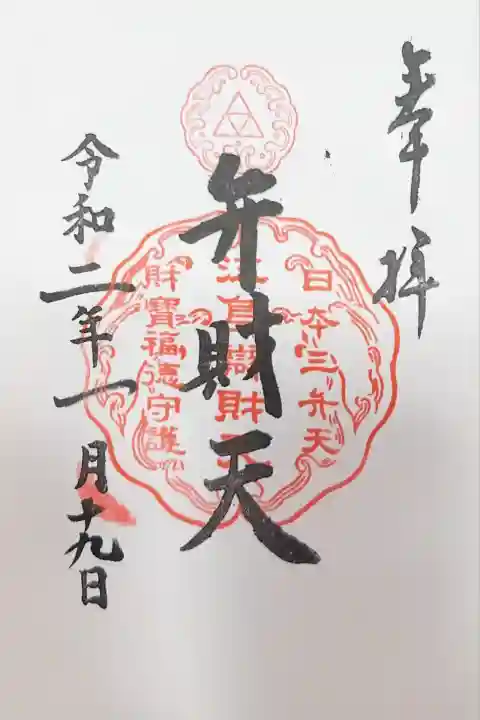 奉拝
日本三弁天
江島辯財天
弁財天
財寶福徳守護
令和二年一月十九日